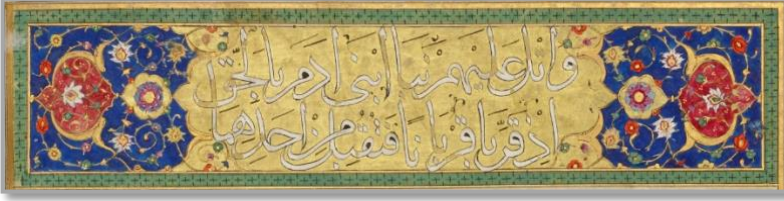 واتل عليهم نبأ ابنى ادم بالحق
اذ قربا قربانا فتقبل من احدهما